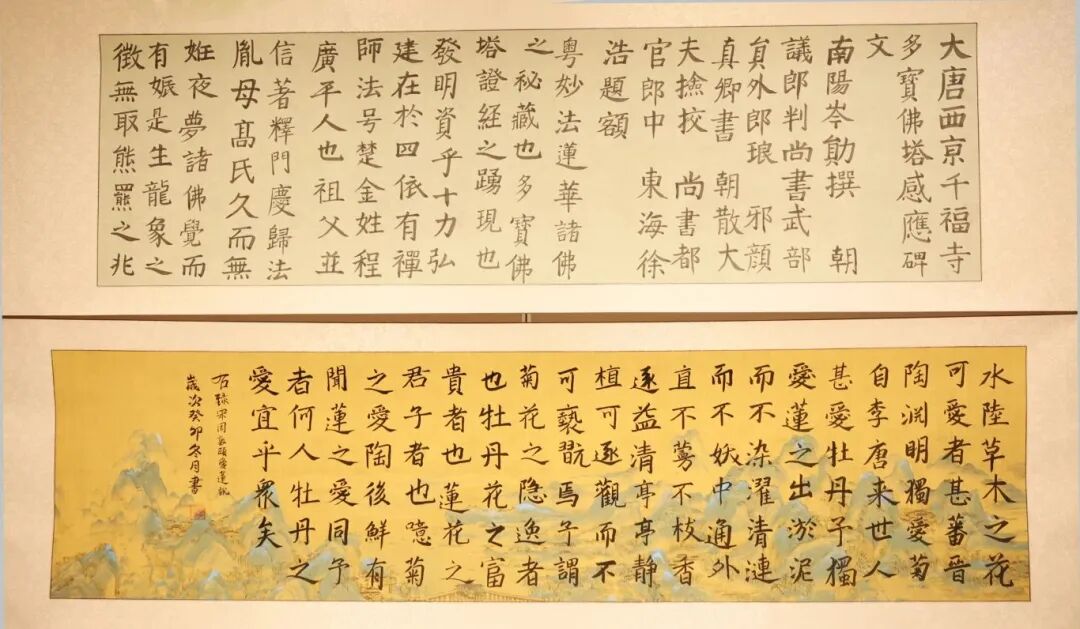 大唐西京千福寺
多寶佛塔感應碑
文
南陽岑勛撰 朝
議郎判尚書武部
貟外郎琅 邪顏
真卿書 朝散大
夫撿挍 尚書都
官郎中 東海徐
浩題額
粵妙法蓮華諸佛
之秘藏也多寶佛
塔證經之踴現也
發明資乎十力弘
建在於四依有禪
師法号楚金姓程
廣平人也祖父並
信著釋門慶歸法
胤母髙氏久而無
姙夜夢諸佛覺而
有娠是生龍象之
徵無取熊羆之兆
水陸草木之花
可愛者甚蕃晉
陶淵明獨愛菊
自李唐來世人
甚愛牡丹予獨
愛蓮之出淤泥
而不染濯清漣
而不妖中通外
直不蔓不枝香
遠益清亭亭靜
植可遠觀而不
可褻翫焉予謂
菊花之隐逸者
也牡丹花之富
貴者也蓮花之
君子者也噫菊
之愛陶後鮮有
聞蓮之愛同予
者何人牡丹之
愛宜乎眾矣
右錄宋周敦頤愛蓮說
歲次癸卯冬月書